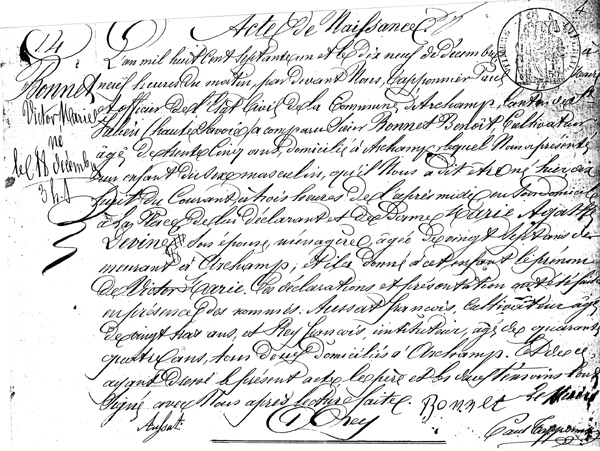 14
Acte de Naissance
Bonnet
Victor Marie
né
le 18 décembre
3 h. s
L'an mil huit cent septante un et le dix neuf de Décembre à
neuf heures du matin, par devant Nous, Tapponnier Paul Maire
et officier de l'État Civil de la Commune d'Archamp, Canton de St
Julien (haute Savoie) a comparu Sieur Bonnet Benoît, Cultivateur
âgé de trente cinq ans, domicilié à Archamp, lequel Nous a présenté
un enfant du sexe masculin, qu'il Nous a dit être né hier dix
huit du Courant à trois heures de l'après midi en son domicile
à la Place de lui déclarant et de Dame Marie Agathe
Devine Son épouse, ménagère âgée de vingt sept ans de
meurant à Archamp; et il a donné à cet enfant le prénom
de Victor Marie. Ces déclarations et présentation ont été faites
en présence des nommés. Aussat françois, Cultivateur âgé
de vingt trois ans, et Rey françois, instituteur, âgé de quarante
quatre ans, tous deux domiciliés à Archamp. Et de ce
ayant dressé le présent acte, le père et les deux témoins l'ont
Signé avec Nous après lecture faite. Bonnet Le Maire
Aussat Rey Paul Tapponnier